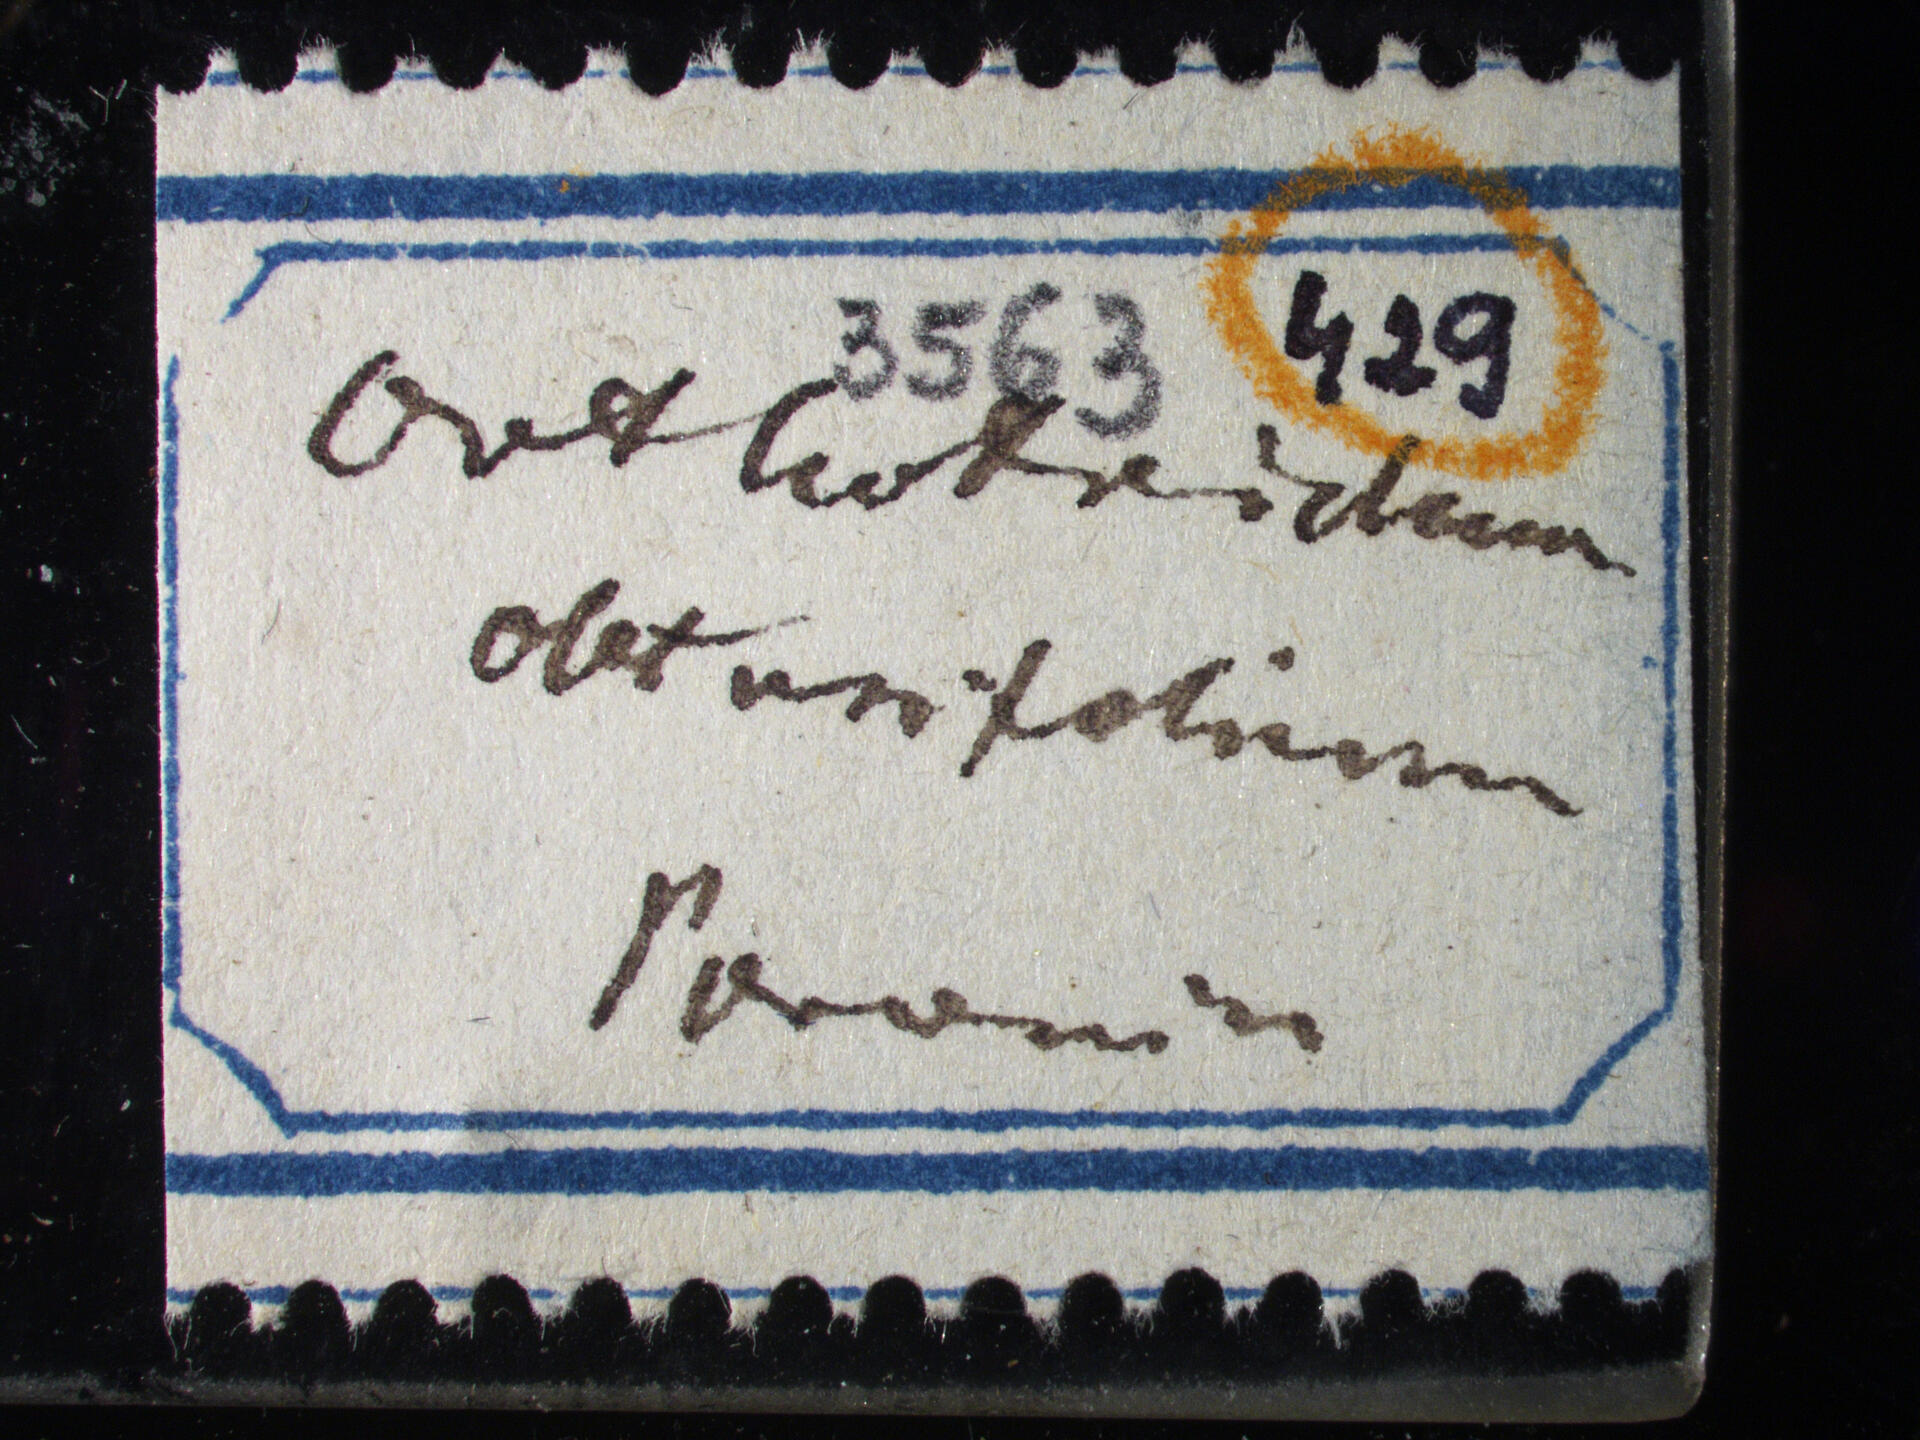 3563
429
Orthotrichum
obtusifolium
Poronin